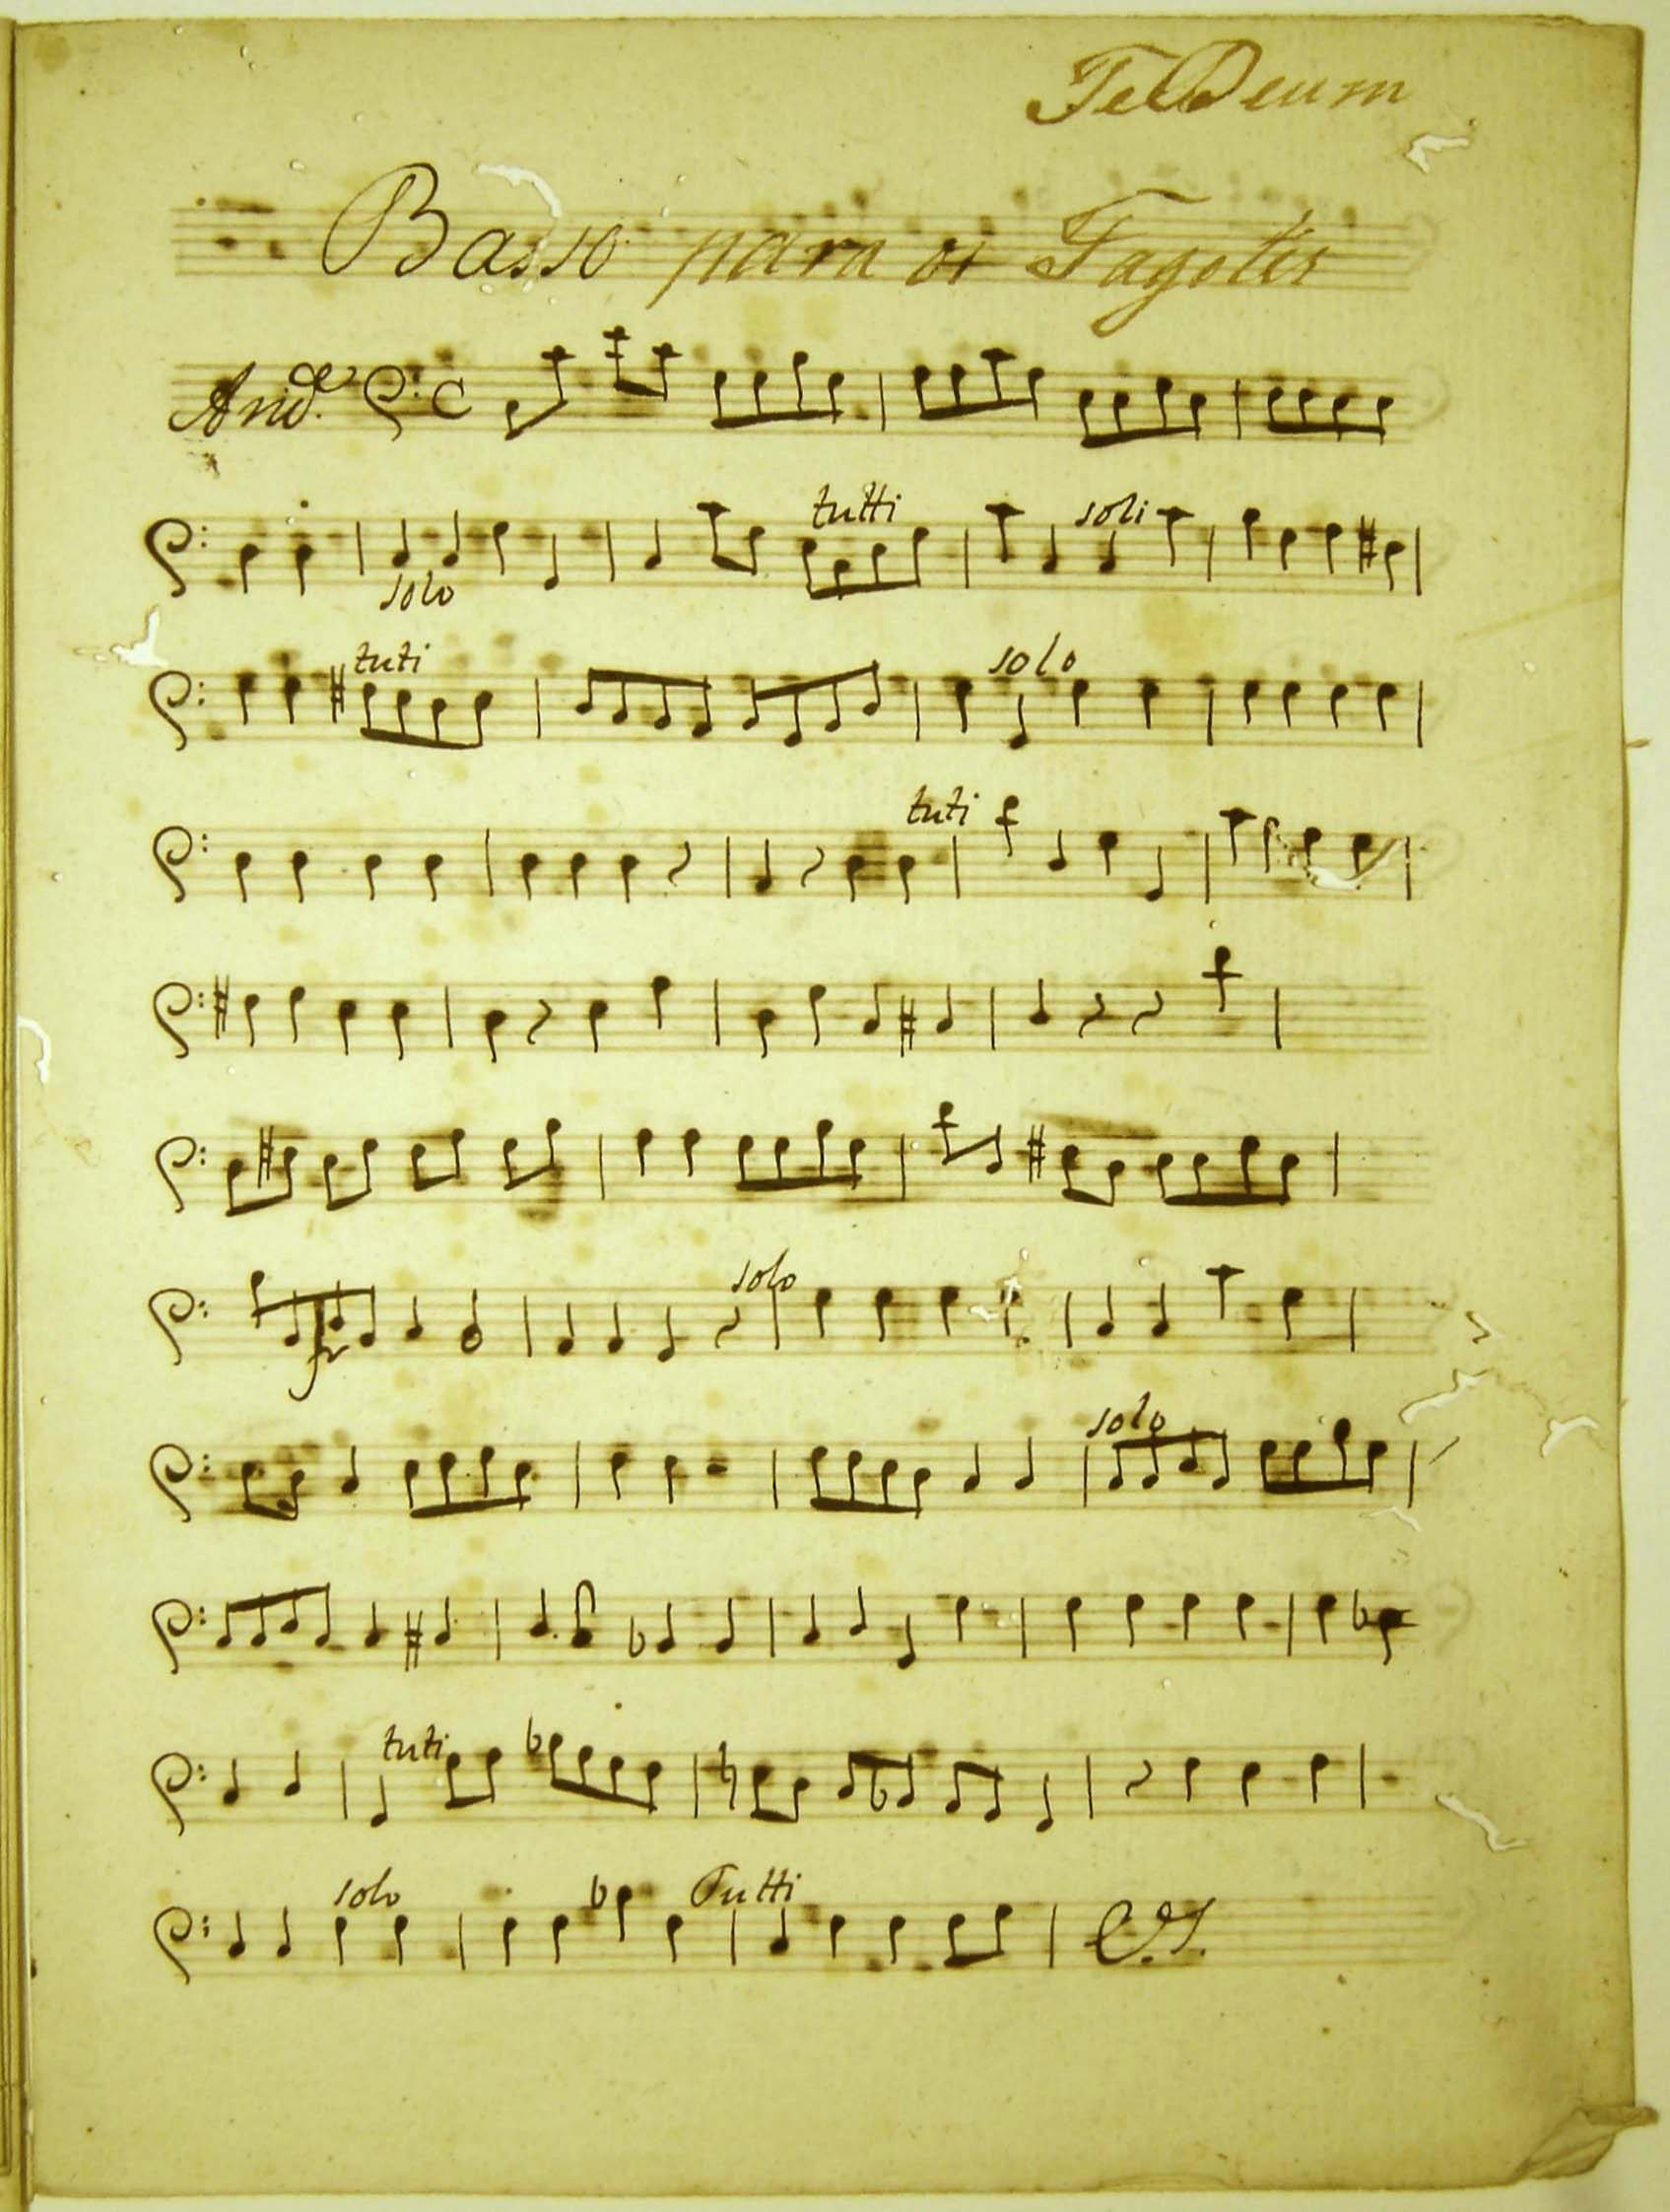 Te Deum
Basso para os Fagotes
And.e C
tutti soli
solo
tuti solo
tuti
solo
solo
tuti
solo Tutti